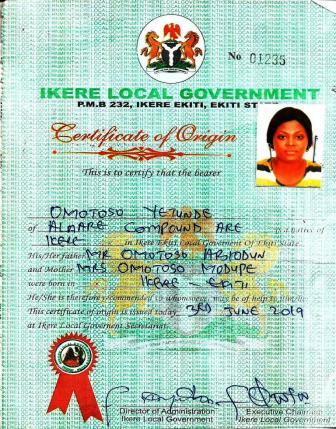 No 01235
IKERE LOCAL GOVERNMENT
P.M.B 232, IKERE EKITI, EKITI STATE
Certificate of Origin
This is to certify that the bearer
OMOTOSO YETUNDE
of ALAARE COMPOUND ARE is a native of
IKERE in Ikere Ekiti Local Goverment Of Ekiti State
His/Her father MR OMOTOSO
and Mother MRS OMOTOSO MODUPE
were born in IKERE - EKITI
He/She is therefore recommended to whomsoever may be of help to him/her
This certificate of origin is issued today 3RD JUNE 2019
at Ikere Local Goverment Secretariat.
Director of Administration
Ikere Local Government
Executive Chairman
Ikere Local Government